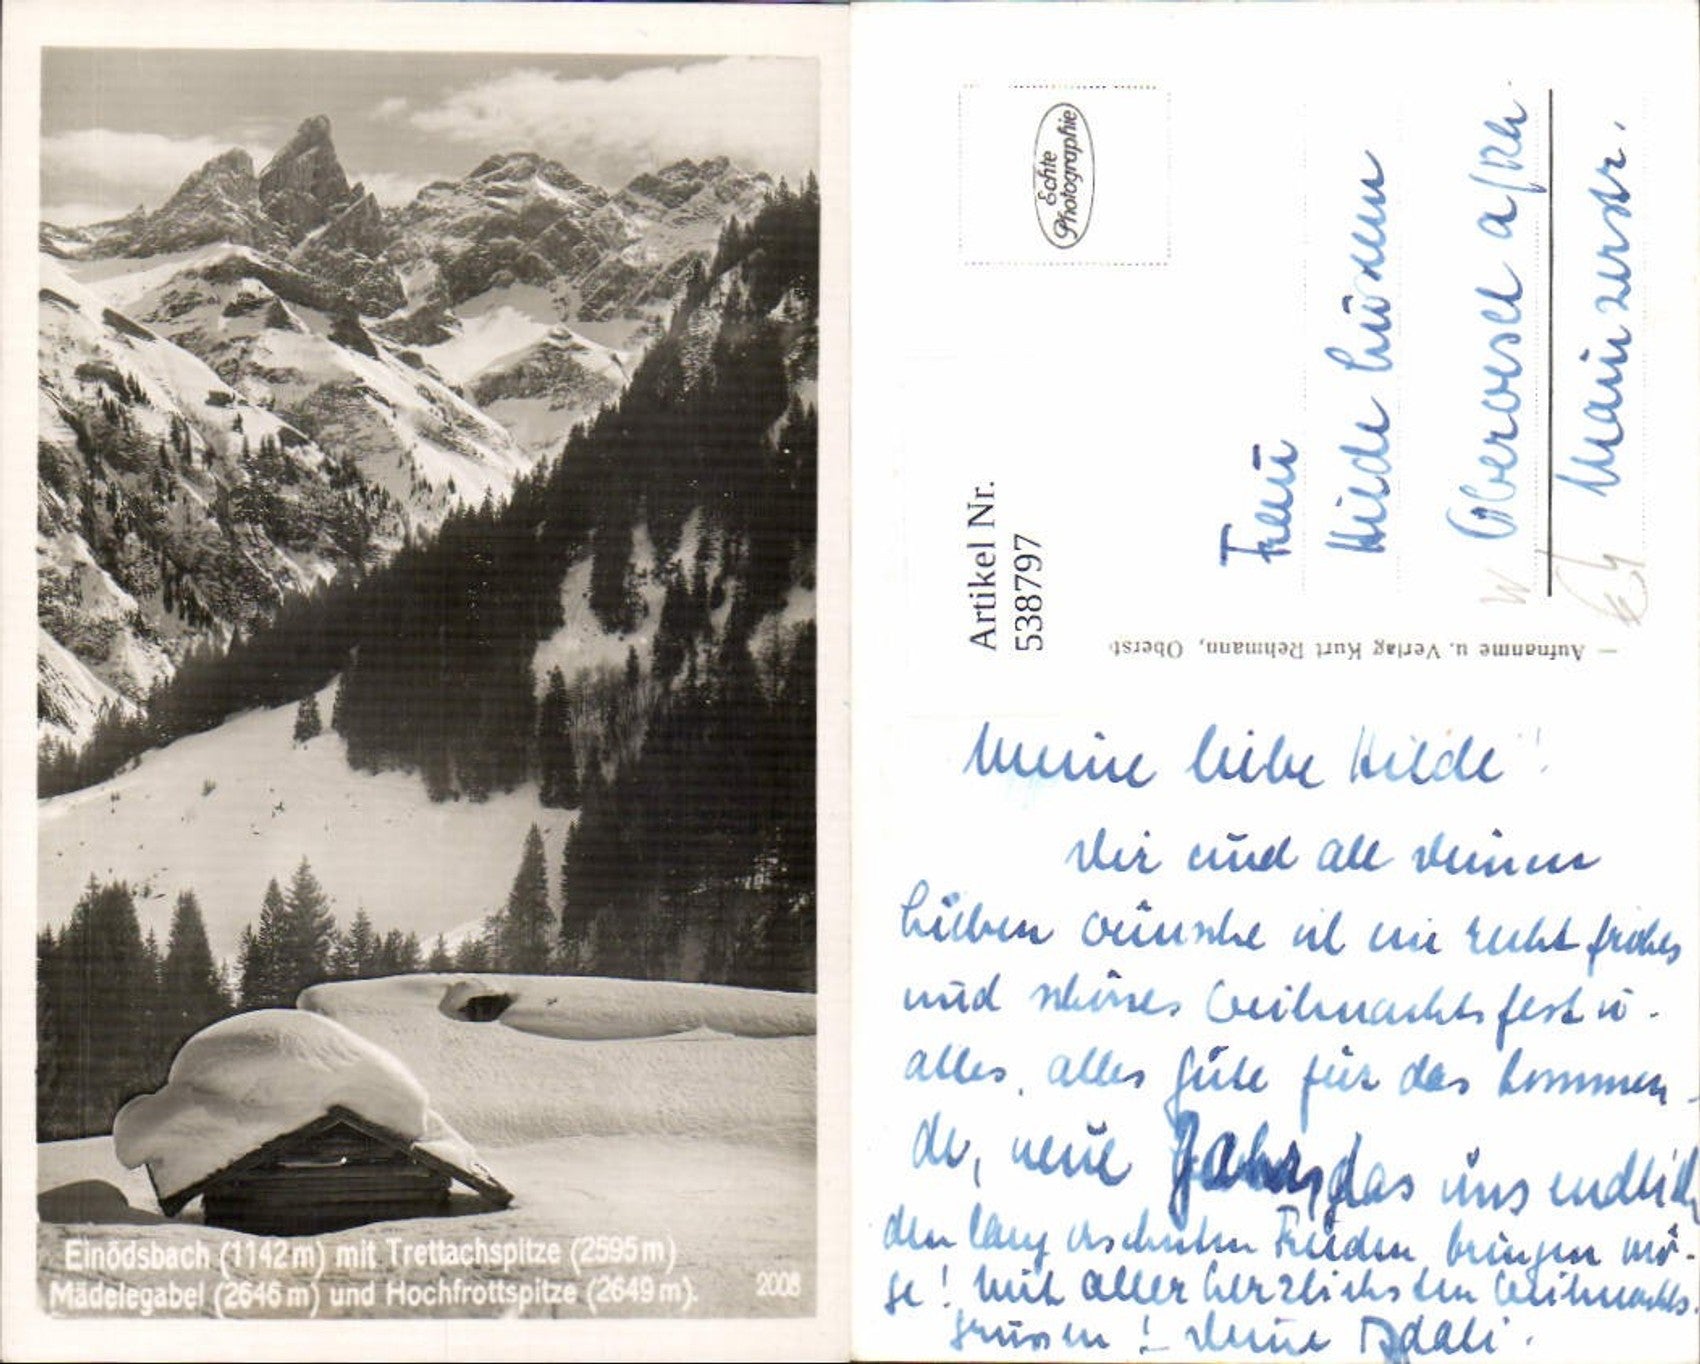 Einödsbach (1142 m) mit Trettachspitze (2595 m)
Mädelegabel (2646 m) und Hochfrottspitze (2649 m).
2008
Echte
Photographie
Artikel Nr.
538797
Frau
Hilde
Oberwesel a/Rh.
Mainzerstr.
Aufnahme u. Verlag Kurt Rehmann, Oberst
Meine liebe Hilde!
Dir und all deinen
Lieben wünsche ich ein recht frohes
und schönes Weihnachtsfest u.
alles, alles Gute für das kommen-
de, neue Jahr, das uns endlich
den lang ersehnten Frieden bringen mö-
ge! Mit aller herzlichsten Weihnachts-
grüssen! Deine